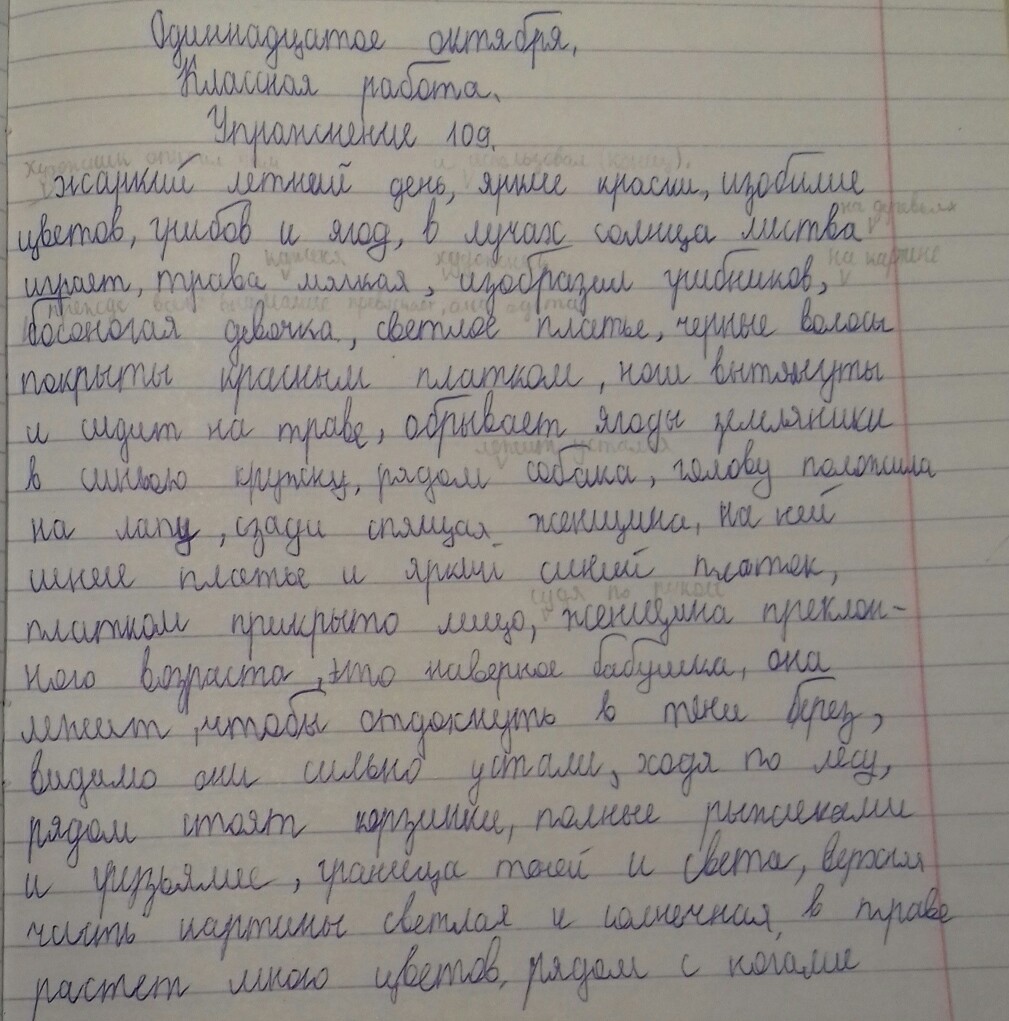 Одиннадцатое октября.
Классная работа.
Упражнение 109.
и использовал (кошку).
жаркий летний день, яркие краски, изобилие
на деревьях
цветов, грибов и ягод, в лучах солнца листва
кажется художник на картине
играет, трава мягкая, изобразил грибников,
прежде всего внимание привлекает, она одета
босоногая девочка, светлое платье, черные волосы
покрыты красным платком, ноги вытянуты
и сидит на траве, обрывает ягоды земляники
лежит усталая
в синюю кружку, рядом собака, голову положила
на лапу, сзади спящая женщина, на ней
синее платье и яркий синий платок,
судя по рукам
платком прикрыто лицо, женщина преклон-
ного возраста, это наверное бабушка, она
лежит, чтобы отдохнуть в тени берез,
видимо они сильно устали, ходя по лесу,
рядом стоят корзинки, полные рыжиками
и груздями, граница теней и света, верхняя
часть картины светлая и солнечная, в траве
растет много цветов, рядом с ногами